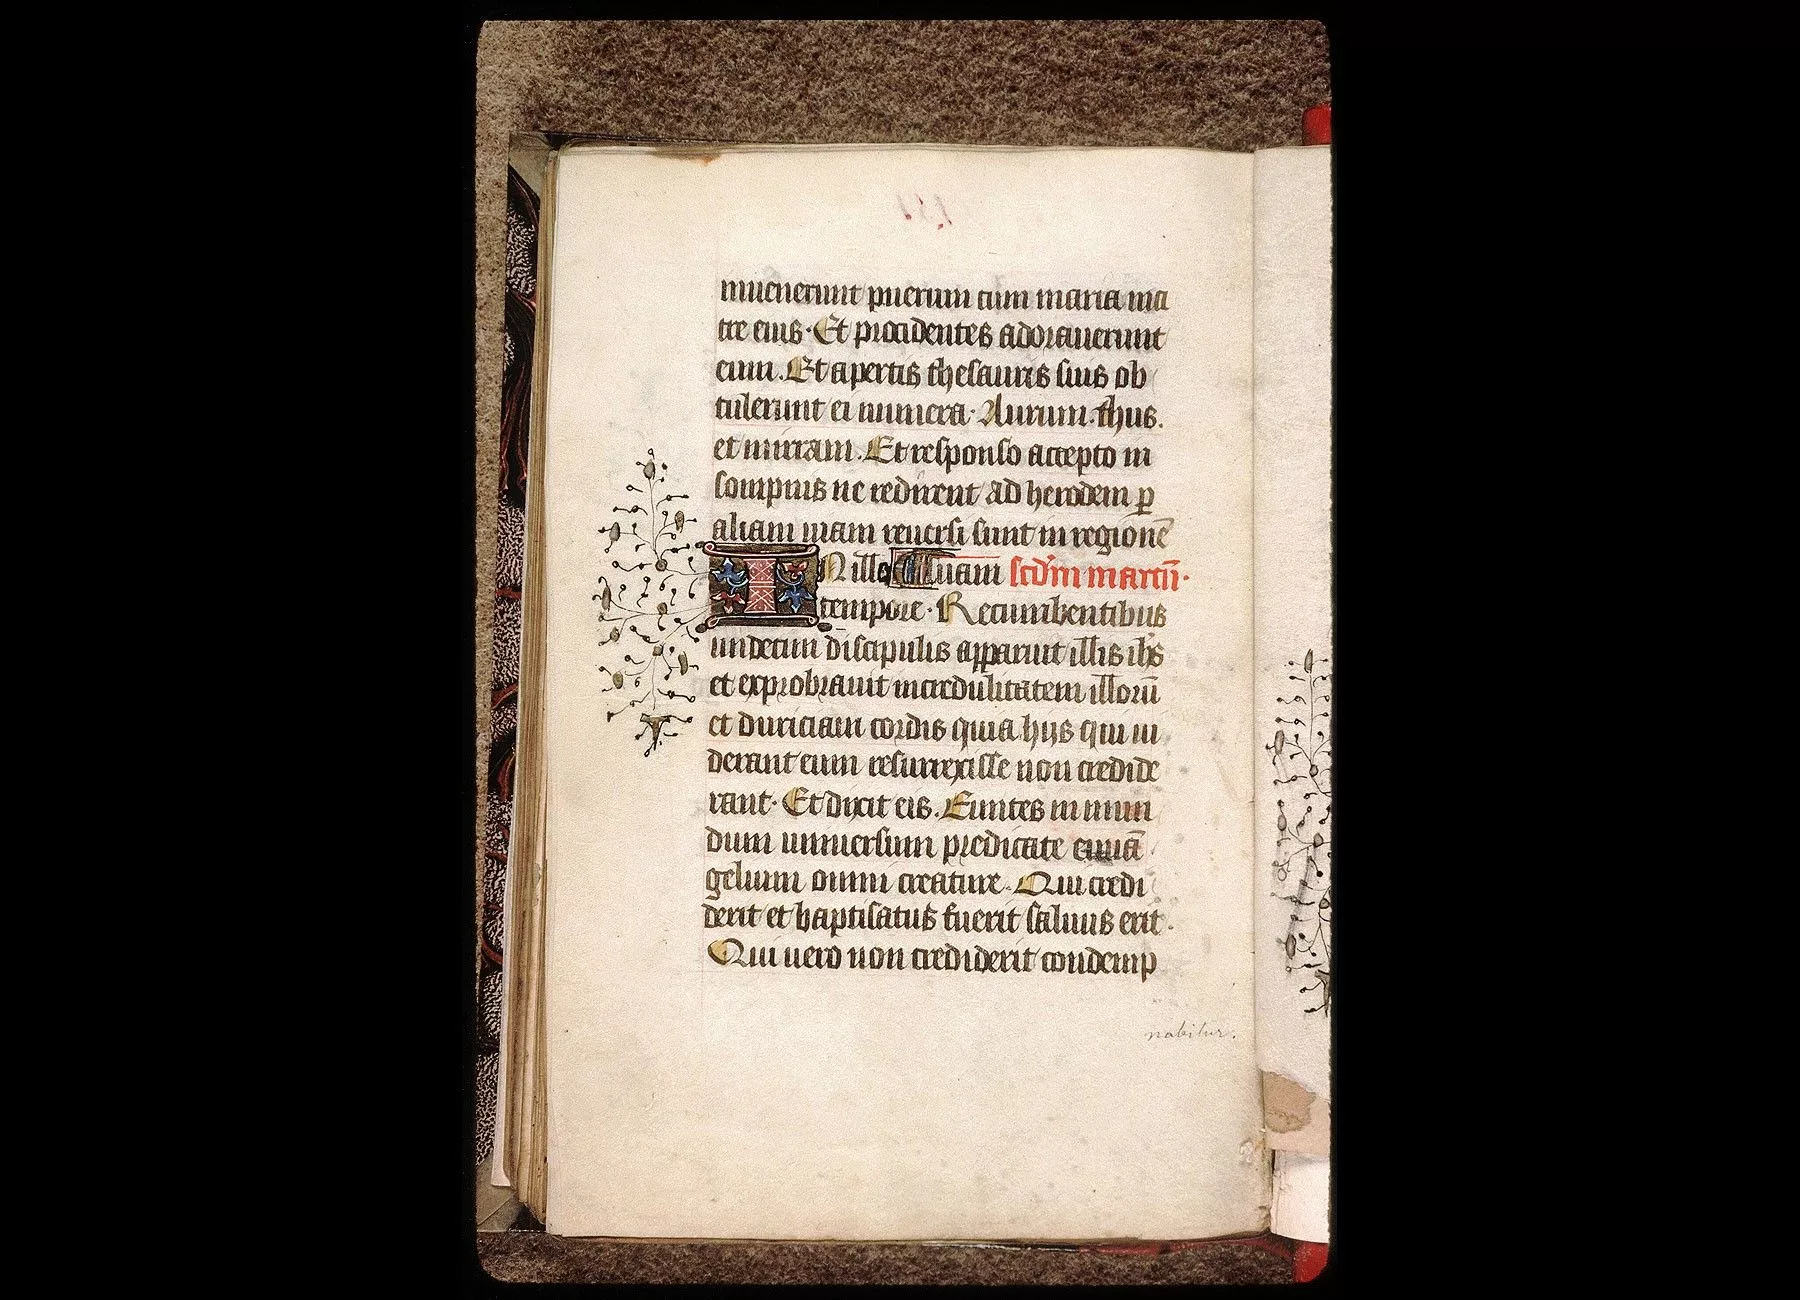 inuenerunt puerum cum maria ma
tre eius. Et procidentes adorauerunt
eum. Et apertis thesauris suis ob
tulerunt ei munera. Aurum. thus.
et mirram. Et responso accepto in
sompnis ne redirent ad herodem ꝑ
aliam uiam reuersi sunt in regionē
suam scd̄m marcū.
IN illo
tempore. Recumbentibus
undecim discipulis apparuit illis ih̄s
et exprobrauit incredulitatem illorū
et duriciam cordis quia hijs qui ui
derant eum resurrexisse non credide
rant. Et dixit eis. Euntes in mun
dum uniuersum predicate euuā
gelium omni creature. Qui credi
derit et baptisatus fuerit saluus erit.
Qui uero non crediderit condemp
nabitur.